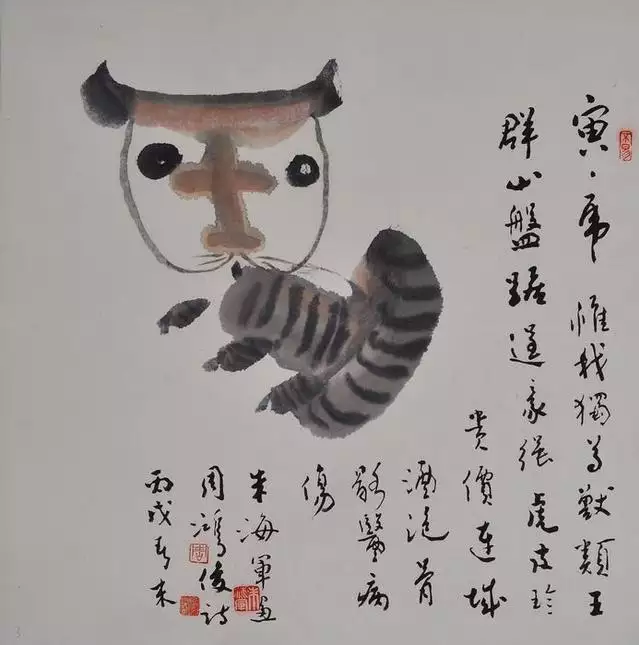 寅、虎 惟我獨尊獸類王
群山盤踞逞豪強 虎皮珍
貴價連城
酒泡骨
骸醫病
傷
朱海軍画
周鴻俊詩
丙戌春末